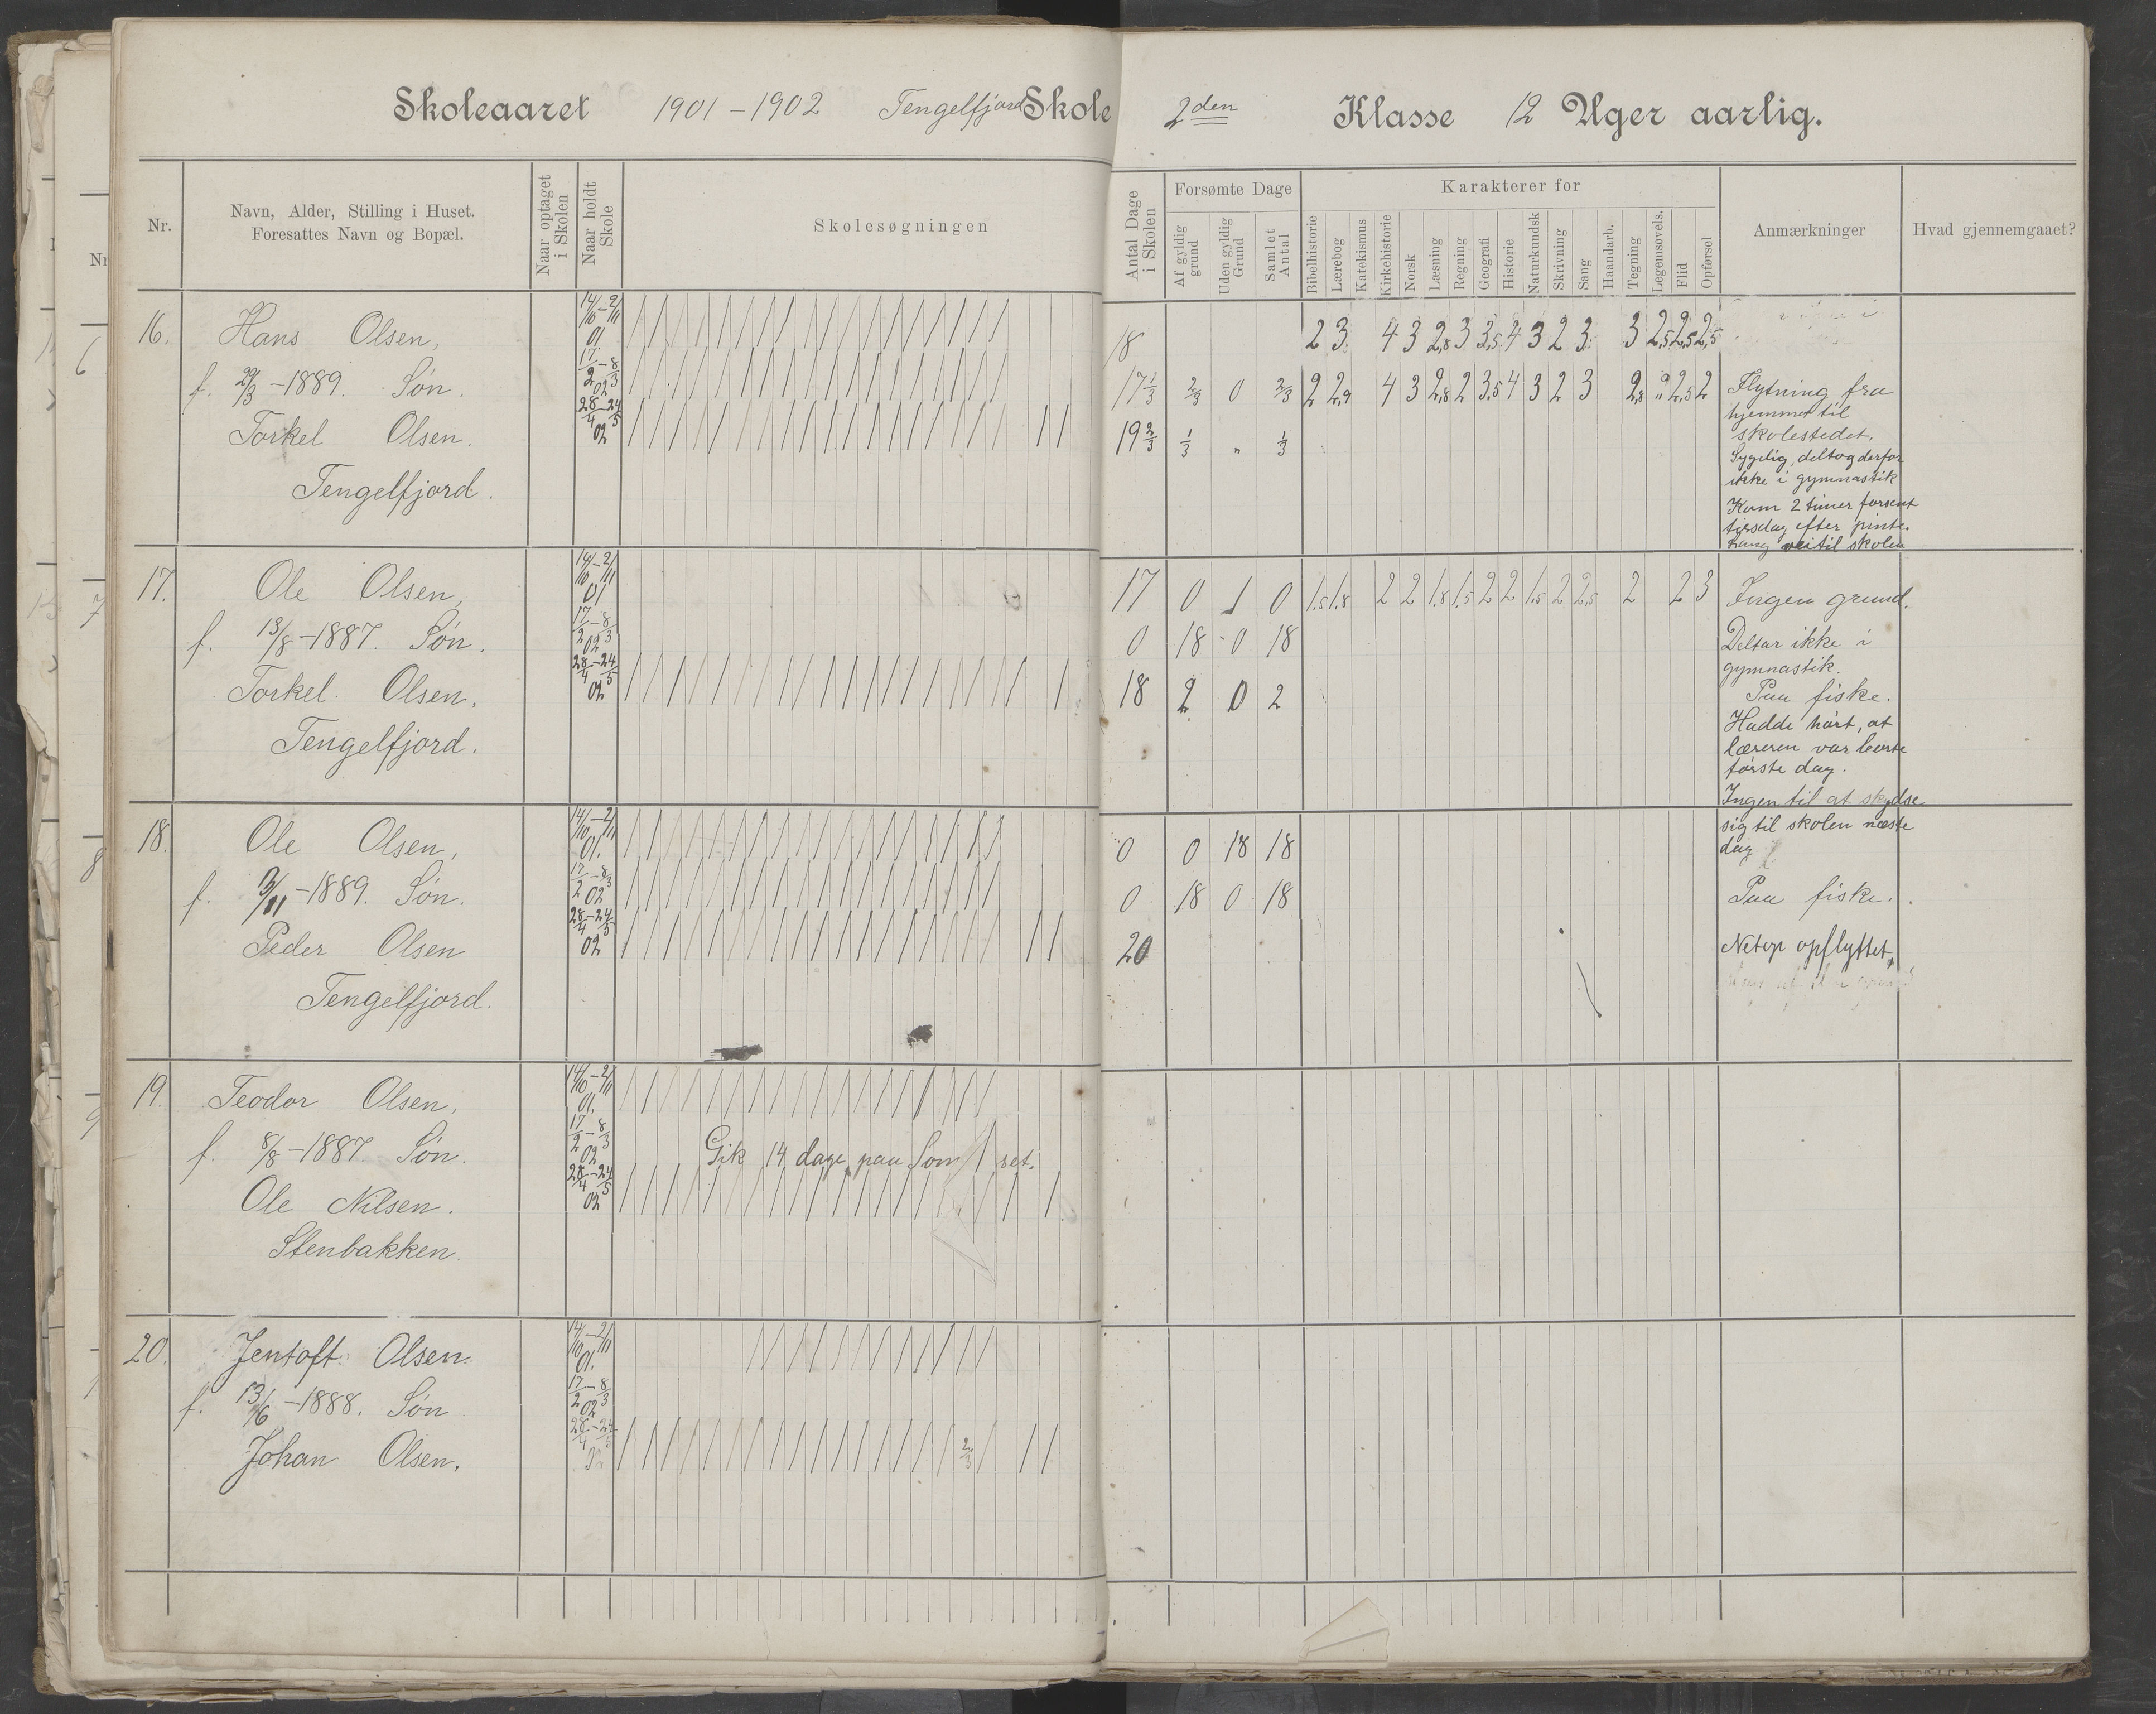 Skoleaaret 1901-1902 Tengelfjord Skole 2den Klasse 12 Uger aarlig.
Nr.
Navn, Alder, Stilling i Huset.
Foresattes Navn og Bopæl.
Naar optaget i Skolen
Naar holdt Skole
Skolesøgningen
Antal Dage i Skolen
Forsømte Dage
Af gyldig grund
Uden gyldig Grund
Samlet Antal
Karakterer for
Bibelhistorie
Lærebog
Katekismus
Kirkehistorie
Norsk
Læsning
Regning
Geografi
Historie
Naturkundsk
Skrivning
Sang
Haandarb.
Tegning
Legemsøvels.
Flid
Opførsel
Anmærkninger
Hvad gjennemgaaet?
16. Hans Olsen,
f. 29/3-1889. Søn.
Torkel Olsen.
Tengelfjord.
14/10-2/11 01
17/2-8/3 02
28/4-24/5 02
18 2 3 4 3 2,8 3 3,5 4 3 2 3 3 2,5 2,5 2,5
17 1/3 2/3 0 2/3 2 2,9 4 3 2,8 2 3,5 4 3 2 3 2,8 " 2,5 2
19 2/3 1/3 " 1/3
Flytning fra
hjemmet til
skolestedet.
Sygelig, deltog derfor
ikke i gymnastik
Kom 2 timer forsent
tirsdag efter pinte.
Lang vei til skolen
17. Ole Olsen,
f. 13/8-1887. Søn.
Torkel Olsen.
Tengelfjord.
14/10-2/11 01
17/2-8/3 02
28/4-24/5 02
17 0 1 0 1,5 1,8 2 2 1,8 1,5 2 2 1,5 2 2,5 2 2 3
0 18 0 18
18 2 0 2
Ingen grund.
Deltar ikke i
gymnastik.
Paa fiske.
Hadde hørt, at
læreren var borte
første dag.
Ingen til at skydse
sig til skolen næste
dag
18. Ole Olsen,
f. /11-1889. Søn.
Peder Olsen
Tengelfjord.
14/10-2/11 01.
17/2-8/3 02
28/4-24/5 02
0 0 18 18
0 18 0 18
20
Paa fiske.
Netop opflyttet.
19. Teodor Olsen,
f. 8/8-1887. Søn.
Ole Nilsen.
Stenbakken.
14/10-2/11 01.
17/2-8/3 02
28/4-24/5 02
Gik 14 dage paa Som set.
20. Jentoft Olsen.
f. 13/6-1888. Søn
Johan Olsen.
14/10-2/11 01.
17/2-8/3 02
28/4-24/5
2/3